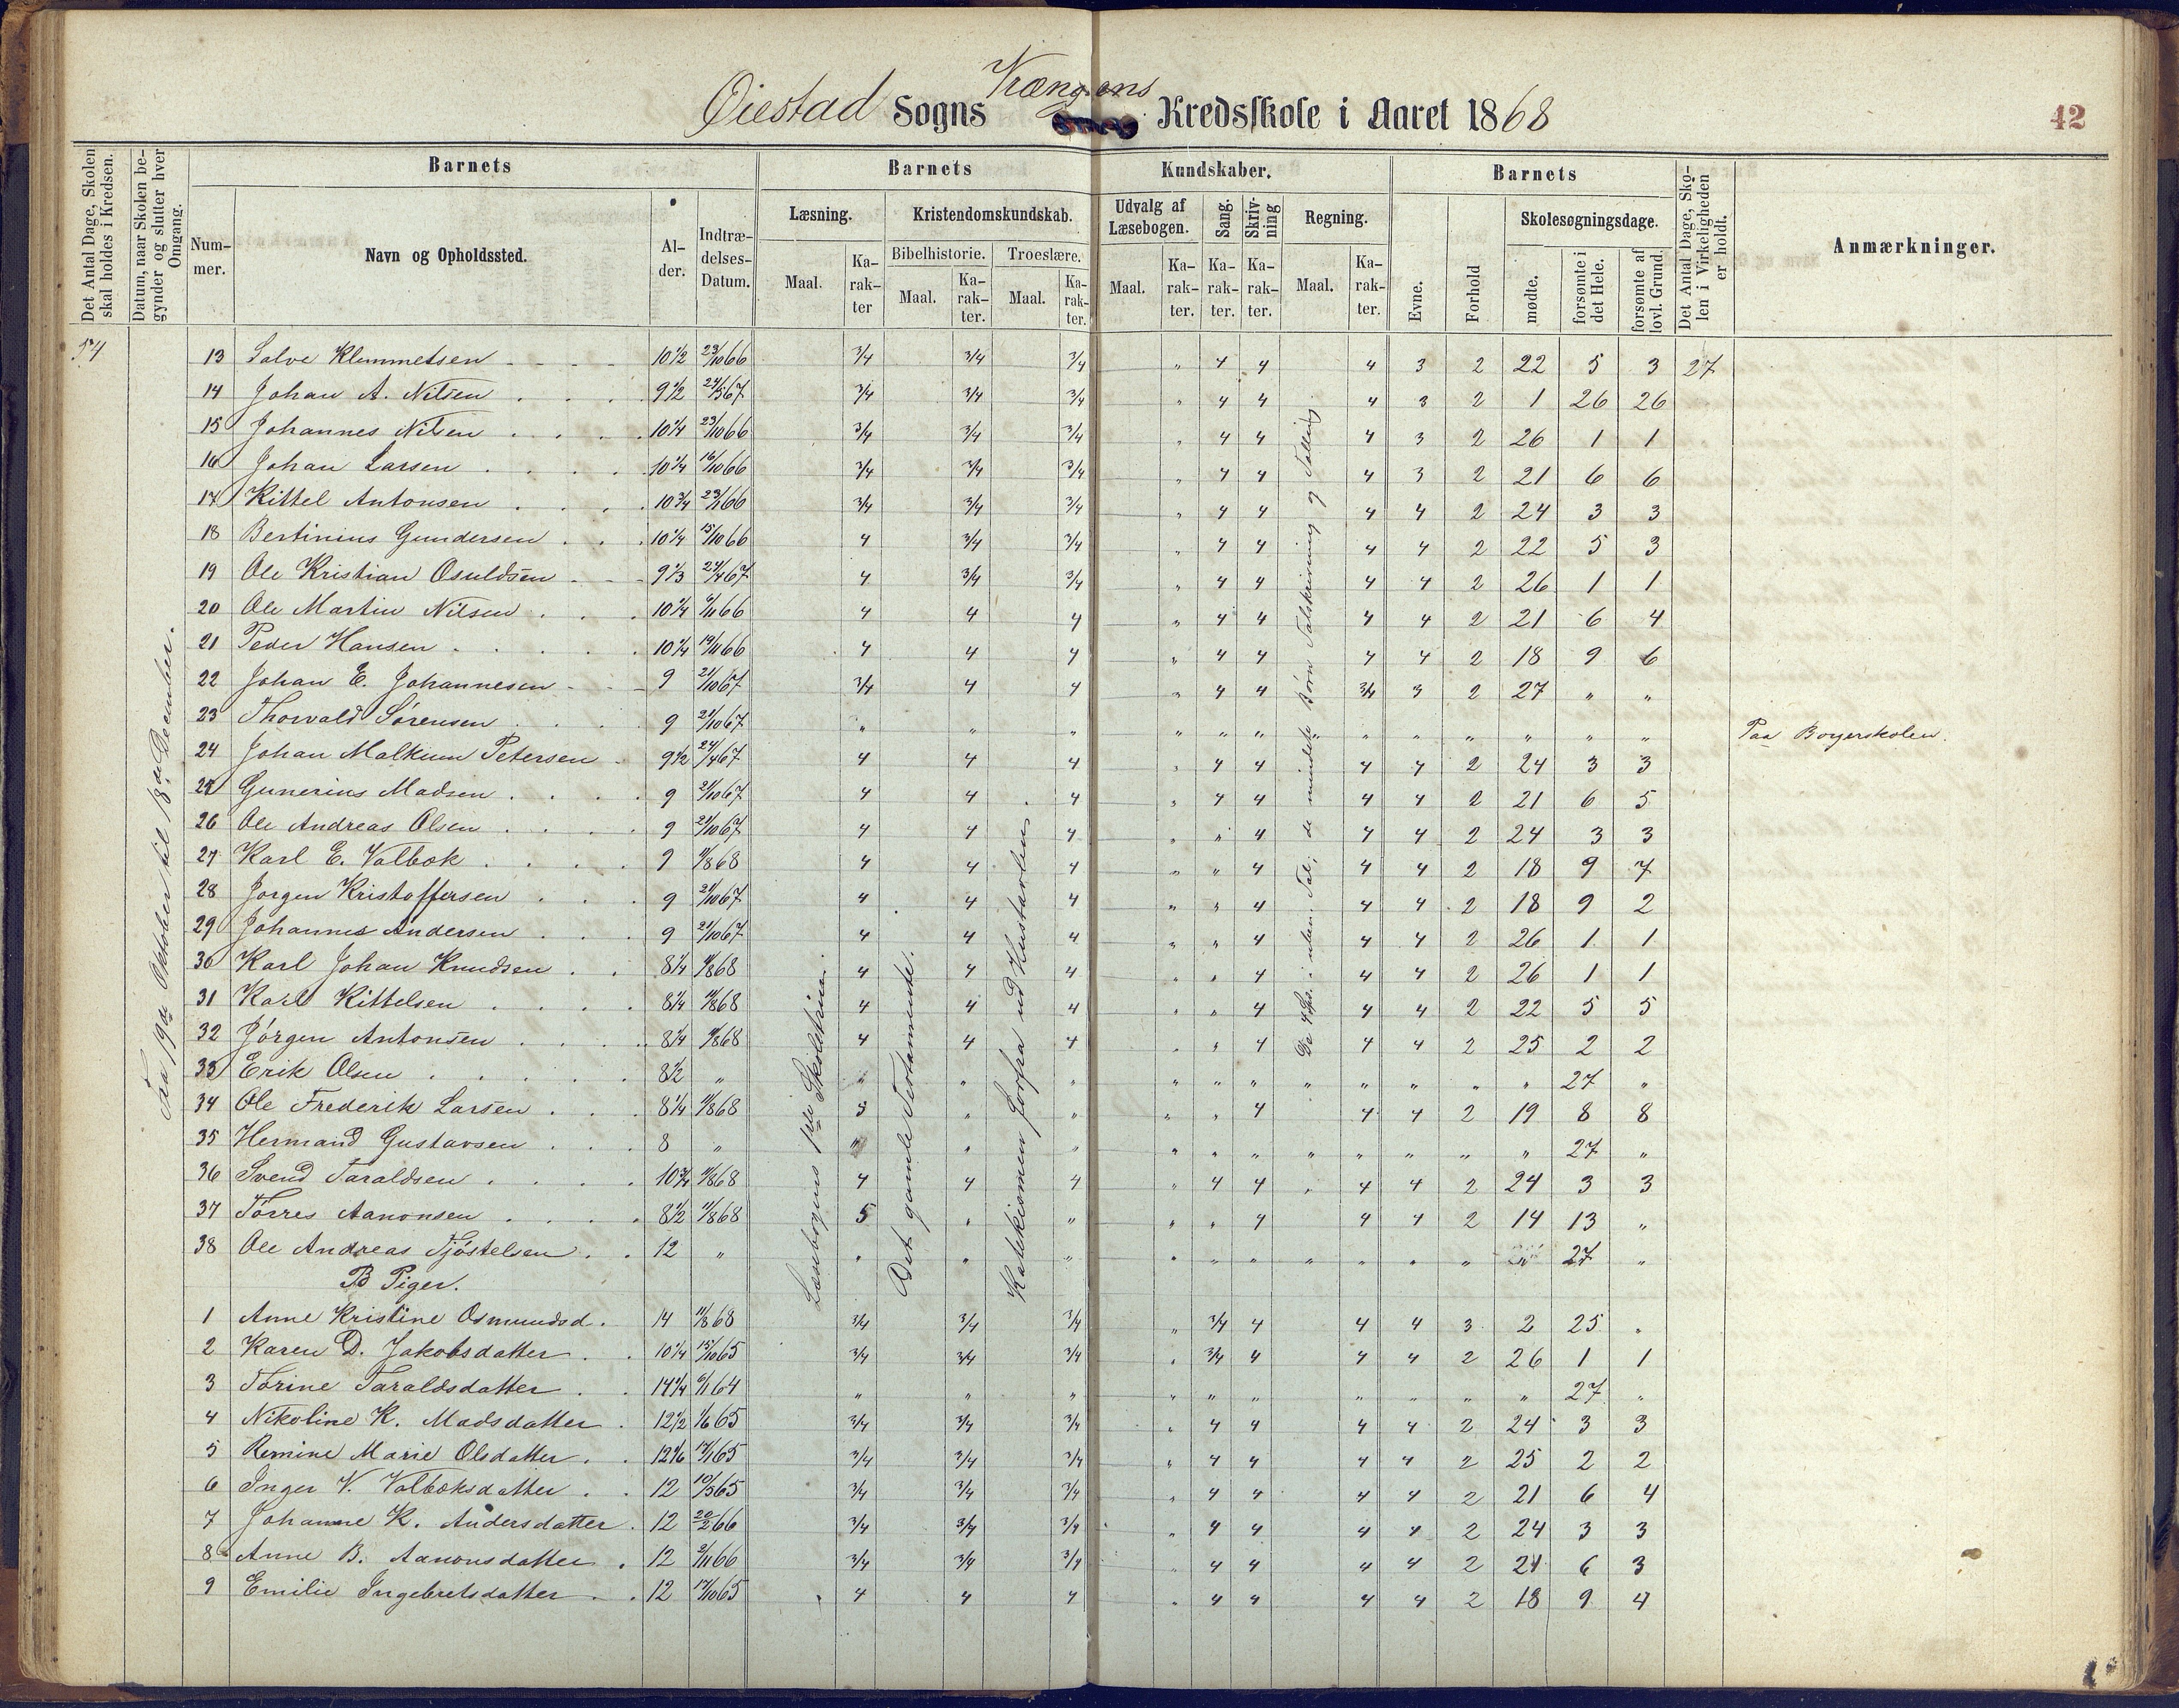 Øiestad Sogns Krængsens Kredsskole i Aaret 1868
42
Det Antal Dage, Skolen skal holdes i Kredsen.
Datum, naar Skolen begynder og slutter hver Omgang.
Barnets
Barnets
Kundskaber.
Barnets
Det Antal Dage, Skolen i Virkeligheden er holdt.
Anmærkninger.
Num-mer.
Navn og Opholdssted.
Al-der.
Indtræ-delses-Datum.
Læsning.
Kristendomskundskab.
Bibelhistorie.
Troeslære.
Udvalg af Læsebogen.
Sang.
Skriv-ning
Regning.
Evne.
Forhold
Skolesøgningsdage.
mødte.
forsømte i det Hele.
forsømte af lovl. Grund.
Maal. Ka-rak-ter Maal. Ka-rak-ter. Maal. Ka-rak-ter. Maal. Ka-rak-ter. Ka-rak-ter. Ka-rak-ter. Maal. Ka-rak-ter.
Fra 19de Oktober til 18de December.
Læsebogens 1ste Skoletrin.
Det gamle Testamente.
Katekismen forfra ud Hustavlen.
Tal; de mindste Børn Talskrivning og Tælling
54
13 Salve Klemmetsen 10 1/2 23/10 66 3/4 3/4 3/4 " 4 4 4 3 2 22 5 3 27
14 Johan A. Nilsen 9 1/2 24/5 67 3/4 3/4 3/4 " 4 4 4 3 2 1 26 26
15 Johannes Nilsen 10 1/4 23/10 66 3/4 3/4 3/4 " 4 4 4 3 2 26 1 1
16 Johan Larsen 10 1/4 16/10 66 3/4 3/4 3/4 " 4 4 4 3 2 21 6 6
17 Kittel Antonsen 10 3/4 3/4 3/4 3/4 " 4 4 4 4 2 24 3 3
18 Bertinius Gundersen 10 1/4 15/10 66 4 3/4 3/4 " 4 4 4 4 2 22 5 3
19 Ole Kristian Osuldsen 9 1/3 24/4 67 4 3/4 3/4 " 4 4 4 4 2 26 1 1
20 Ole Martin Nilsen 10 1/4 6/11 66 4 4 4 " 4 4 4 4 2 21 6 4
21 Peder Hansen 10 1/4 19/11 66 4 4 4 " 4 4 4 4 2 18 9 6
22 Johan E. Johannesen 9 21/10 67 3/4 4 4 " 4 4 3/4 3 2 27 " "
23 Thorvald Sørensen 9 21/10 67 " " " " " " " " " " " " " Paa Borgerskolen.
24 Johan Malkum Petersen 9 1/2 24/4 67 4 4 4 " 4 4 4 4 2 24 3 3
25 Gunerius Madsen 9 21/10 67 4 4 4 " 4 4 4 4 2 21 6 5
26 Ole Andreas Olsen 9 21/10 67 4 4 4 " " 4 4 4 2 24 3 3
27 Karl E. Valbok 9 11/8 68 4 4 4 " " 4 4 4 2 18 9 7
28 Jørgen Kristoffersen 9 21/10 67 4 4 4 " " 4 4 4 2 18 9 2
29 Johannes Andersen 9 21/10 67 4 4 4 " " 4 4 4 2 26 1 1
30 Karl Johan Knudsen 8 1/4 11/8 68 4 4 4 " " 4 4 4 2 26 1 1
31 Karl Kittelsen 8 1/4 11/8 68 4 4 4 " " 4 4 4 2 22 5 5
32 Jørgen Antonsen 8 1/4 11/8 68 4 4 4 " " 4 4 4 2 25 2 2
33 Erik Olsen 8 1/2 " " " " " " " " " " " " 27 "
34 Ole Frederik Larsen 8 1/4 11/8 68 5 " " " " 4 4 4 2 19 8 8
35 Hermand Gustavsen 8 " " " " " " " " " " " " 27 "
36 Svend Taraldsen 10 3/4 11/8 68 4 4 4 " 4 4 " 4 4 2 24 3 3
37 Tørres Aanonsen 8 1/2 11/8 68 5 " " " " 4 4 4 2 14 13 "
38 Ole Andreas Tjøstelsen 12 " " " " " " " " " " " " 27 "
B Piger.
1 Anne Kristine Osmundsd. 14 11/8 68 3/4 3/4 3/4 " 3/4 4 4 4 3 2 25 "
2 Karen D. Jakobsdatter 10 1/4 15/10 65 3/4 3/4 3/4 " 3/4 4 4 4 2 26 1 1
3 Torine Taraldsdatter 14 1/4 6/1 64 " " " " " " " " " " 27 "
4 Nikoline K. Madsdatter 12 1/2 1/6 65 3/4 3/4 3/4 " 4 4 4 4 2 24 3 3
5 Remine Marie Olsdatter 12 1/6 17/1 65 3/4 3/4 3/4 " 4 4 4 4 2 25 2 2
6 Inger V. Valboksdatter 12 10/5 65 3/4 3/4 3/4 " 4 4 4 4 2 21 6 4
7 Johanne K. Andersdatter 12 20/2 66 3/4 3/4 3/4 " 4 4 4 4 2 24 3 3
8 Anne B. Aanonsdatter 12 2/11 66 3/4 3/4 3/4 " 4 4 4 4 2 21 6 3
9 Emilie Ingebretsdatter 12 17/10 65 4 4 4 " 4 4 4 4 2 18 9 4